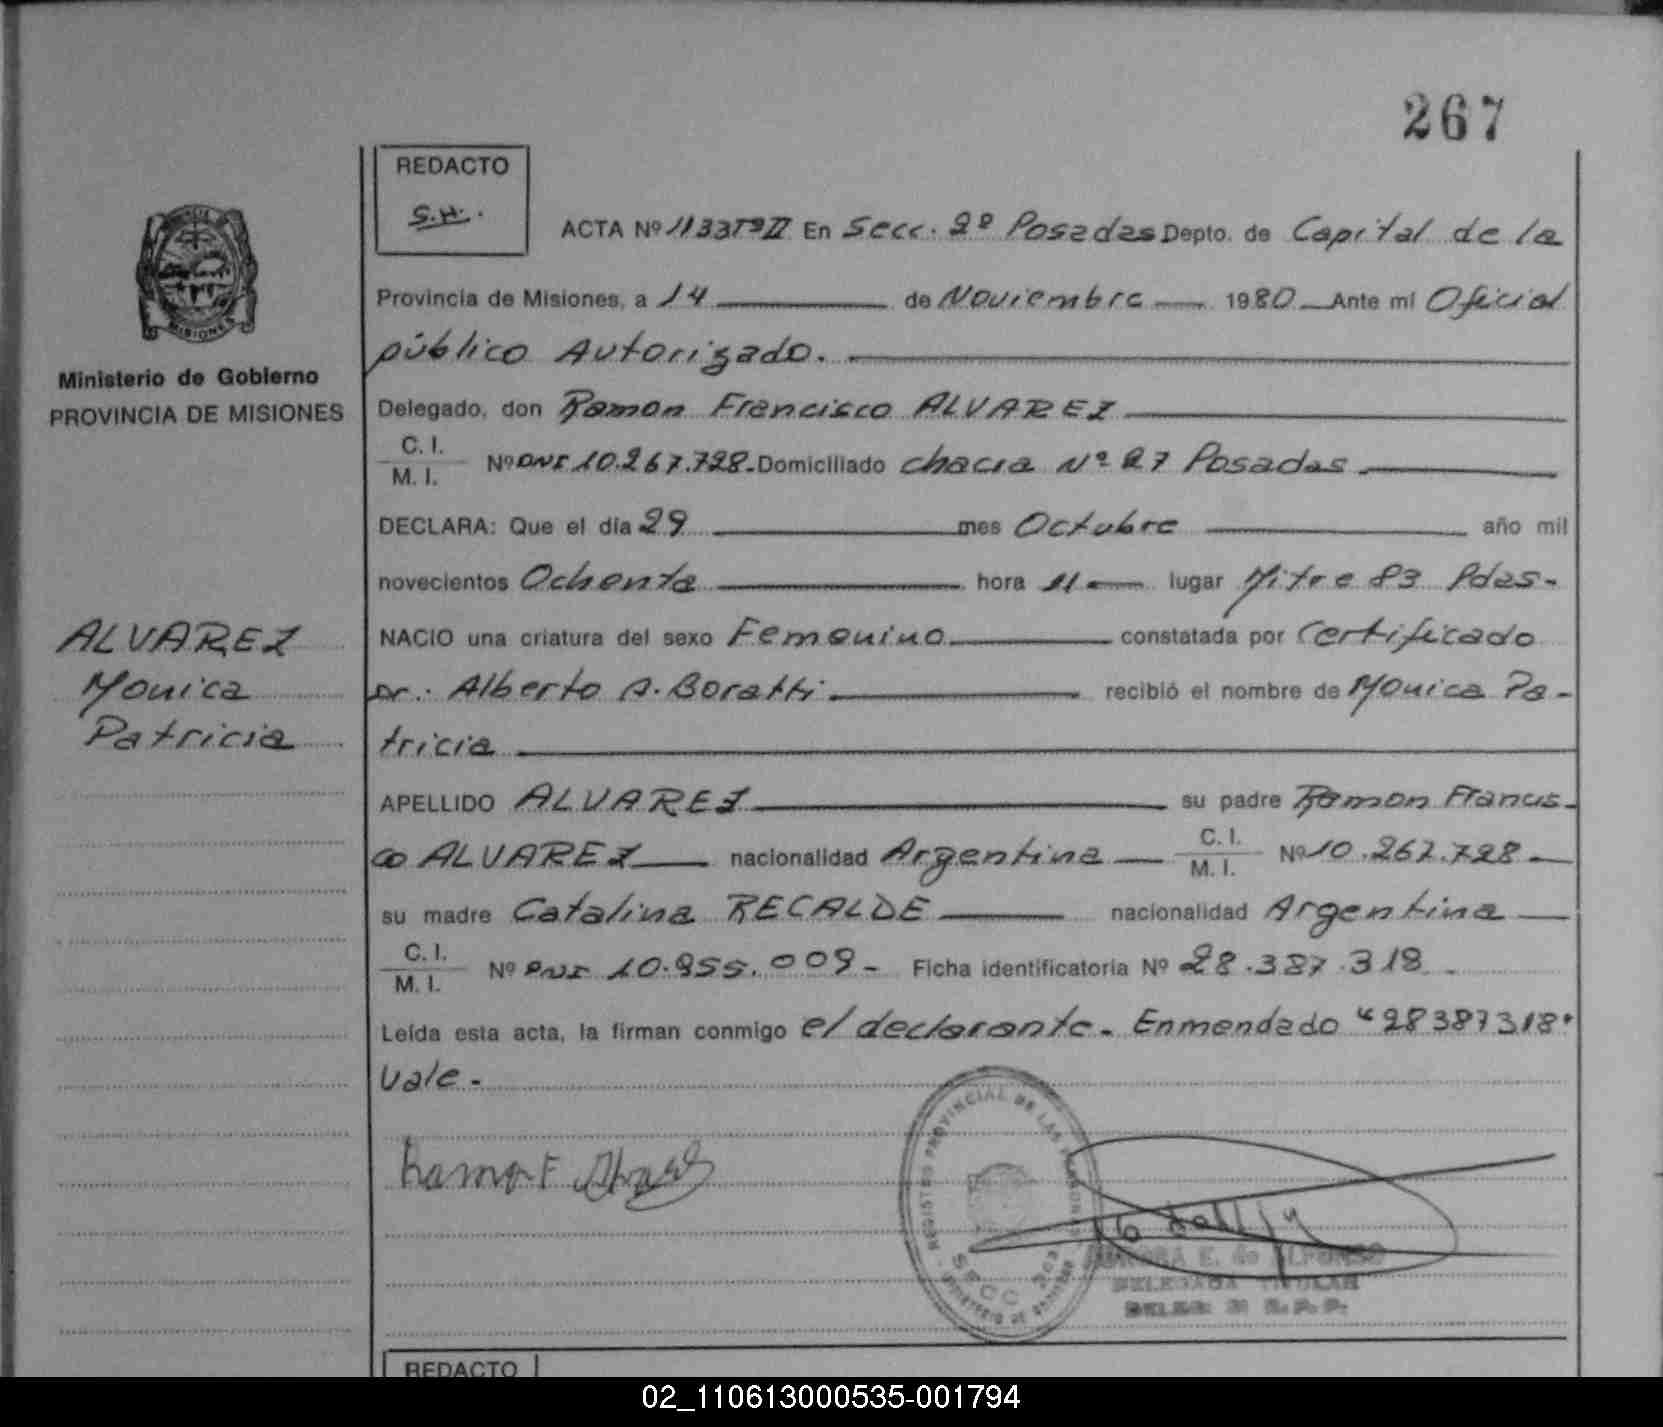 267
REDACTO
S.H.
ACTA Nº 1133Tº II En Secc. 2º Posadas Depto. de Capital de la
Provincia de Misiones, a 14 de Noviembre 1980 Ante mi Oficial
público Autorizado.
MISIONES
Ministerio de Gobierno
PROVINCIA DE MISIONES
Delegado, don Ramon Francisco ALVAREZ
C. I.
M. I.
Nº DNI 10.267.728. Domiciliado chacra Nº 27 Posadas
DECLARA: Que el día 29 mes Octubre año mil
novecientos Ochenta hora 11 lugar Mitre 83 Pdas-
ALVAREZ
Monica
Patricia
NACIO una criatura del sexo Femenino constatada por Certificado
Dr. Alberto A. Boratti recibió el nombre de Monica Pa-
tricia
APELLIDO ALVAREZ su padre Ramon Francis-
co ALVAREZ nacionalidad Argentina C. I. M. I. Nº 10.267.728
su madre Catalina RECALDE nacionalidad Argentina
C. I.
M. I.
Nº DNI 10.955.009- Ficha identificatoria Nº 28.387.318
Leída esta acta, la firman conmigo el declarante. Enmendado "28387318"
Vale-
Ramon F Alvarez
REGISTRO PROVINCIAL DE LAS PERSONAS
SECC 2da
E. de ALFONSO
DELEGADA TITULAR
REDACTO
02_110613000535-001794